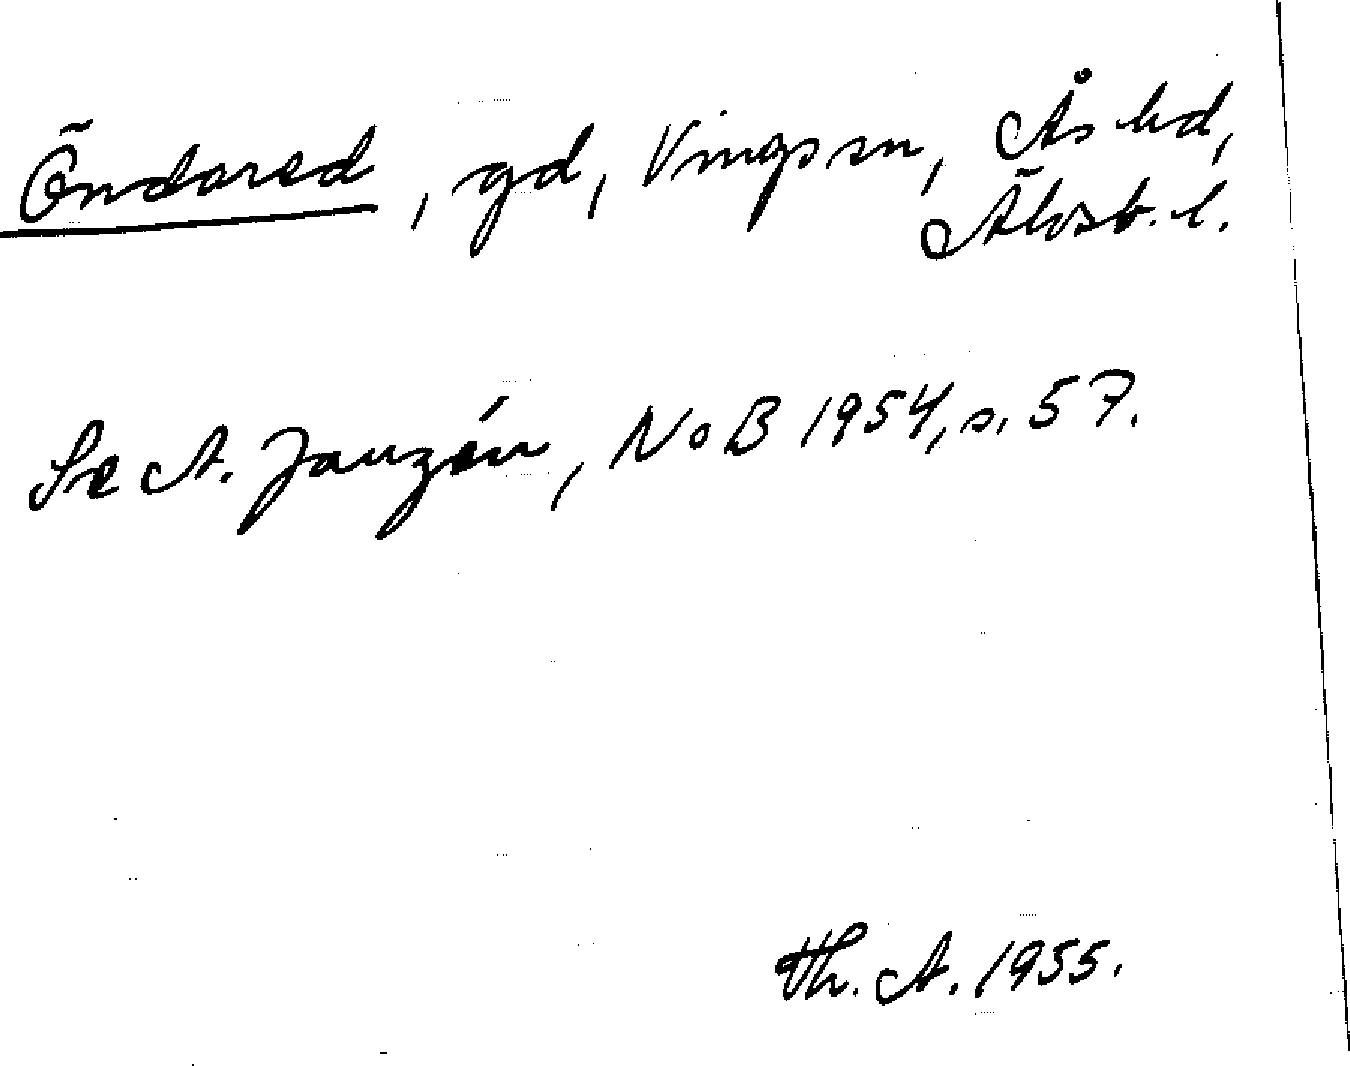 Öndared, gd, Vings sn, Ås hd,
Älvsb. l.
Se A. Janzén, NoB 1954, s. 57.
Th. A. 1955.